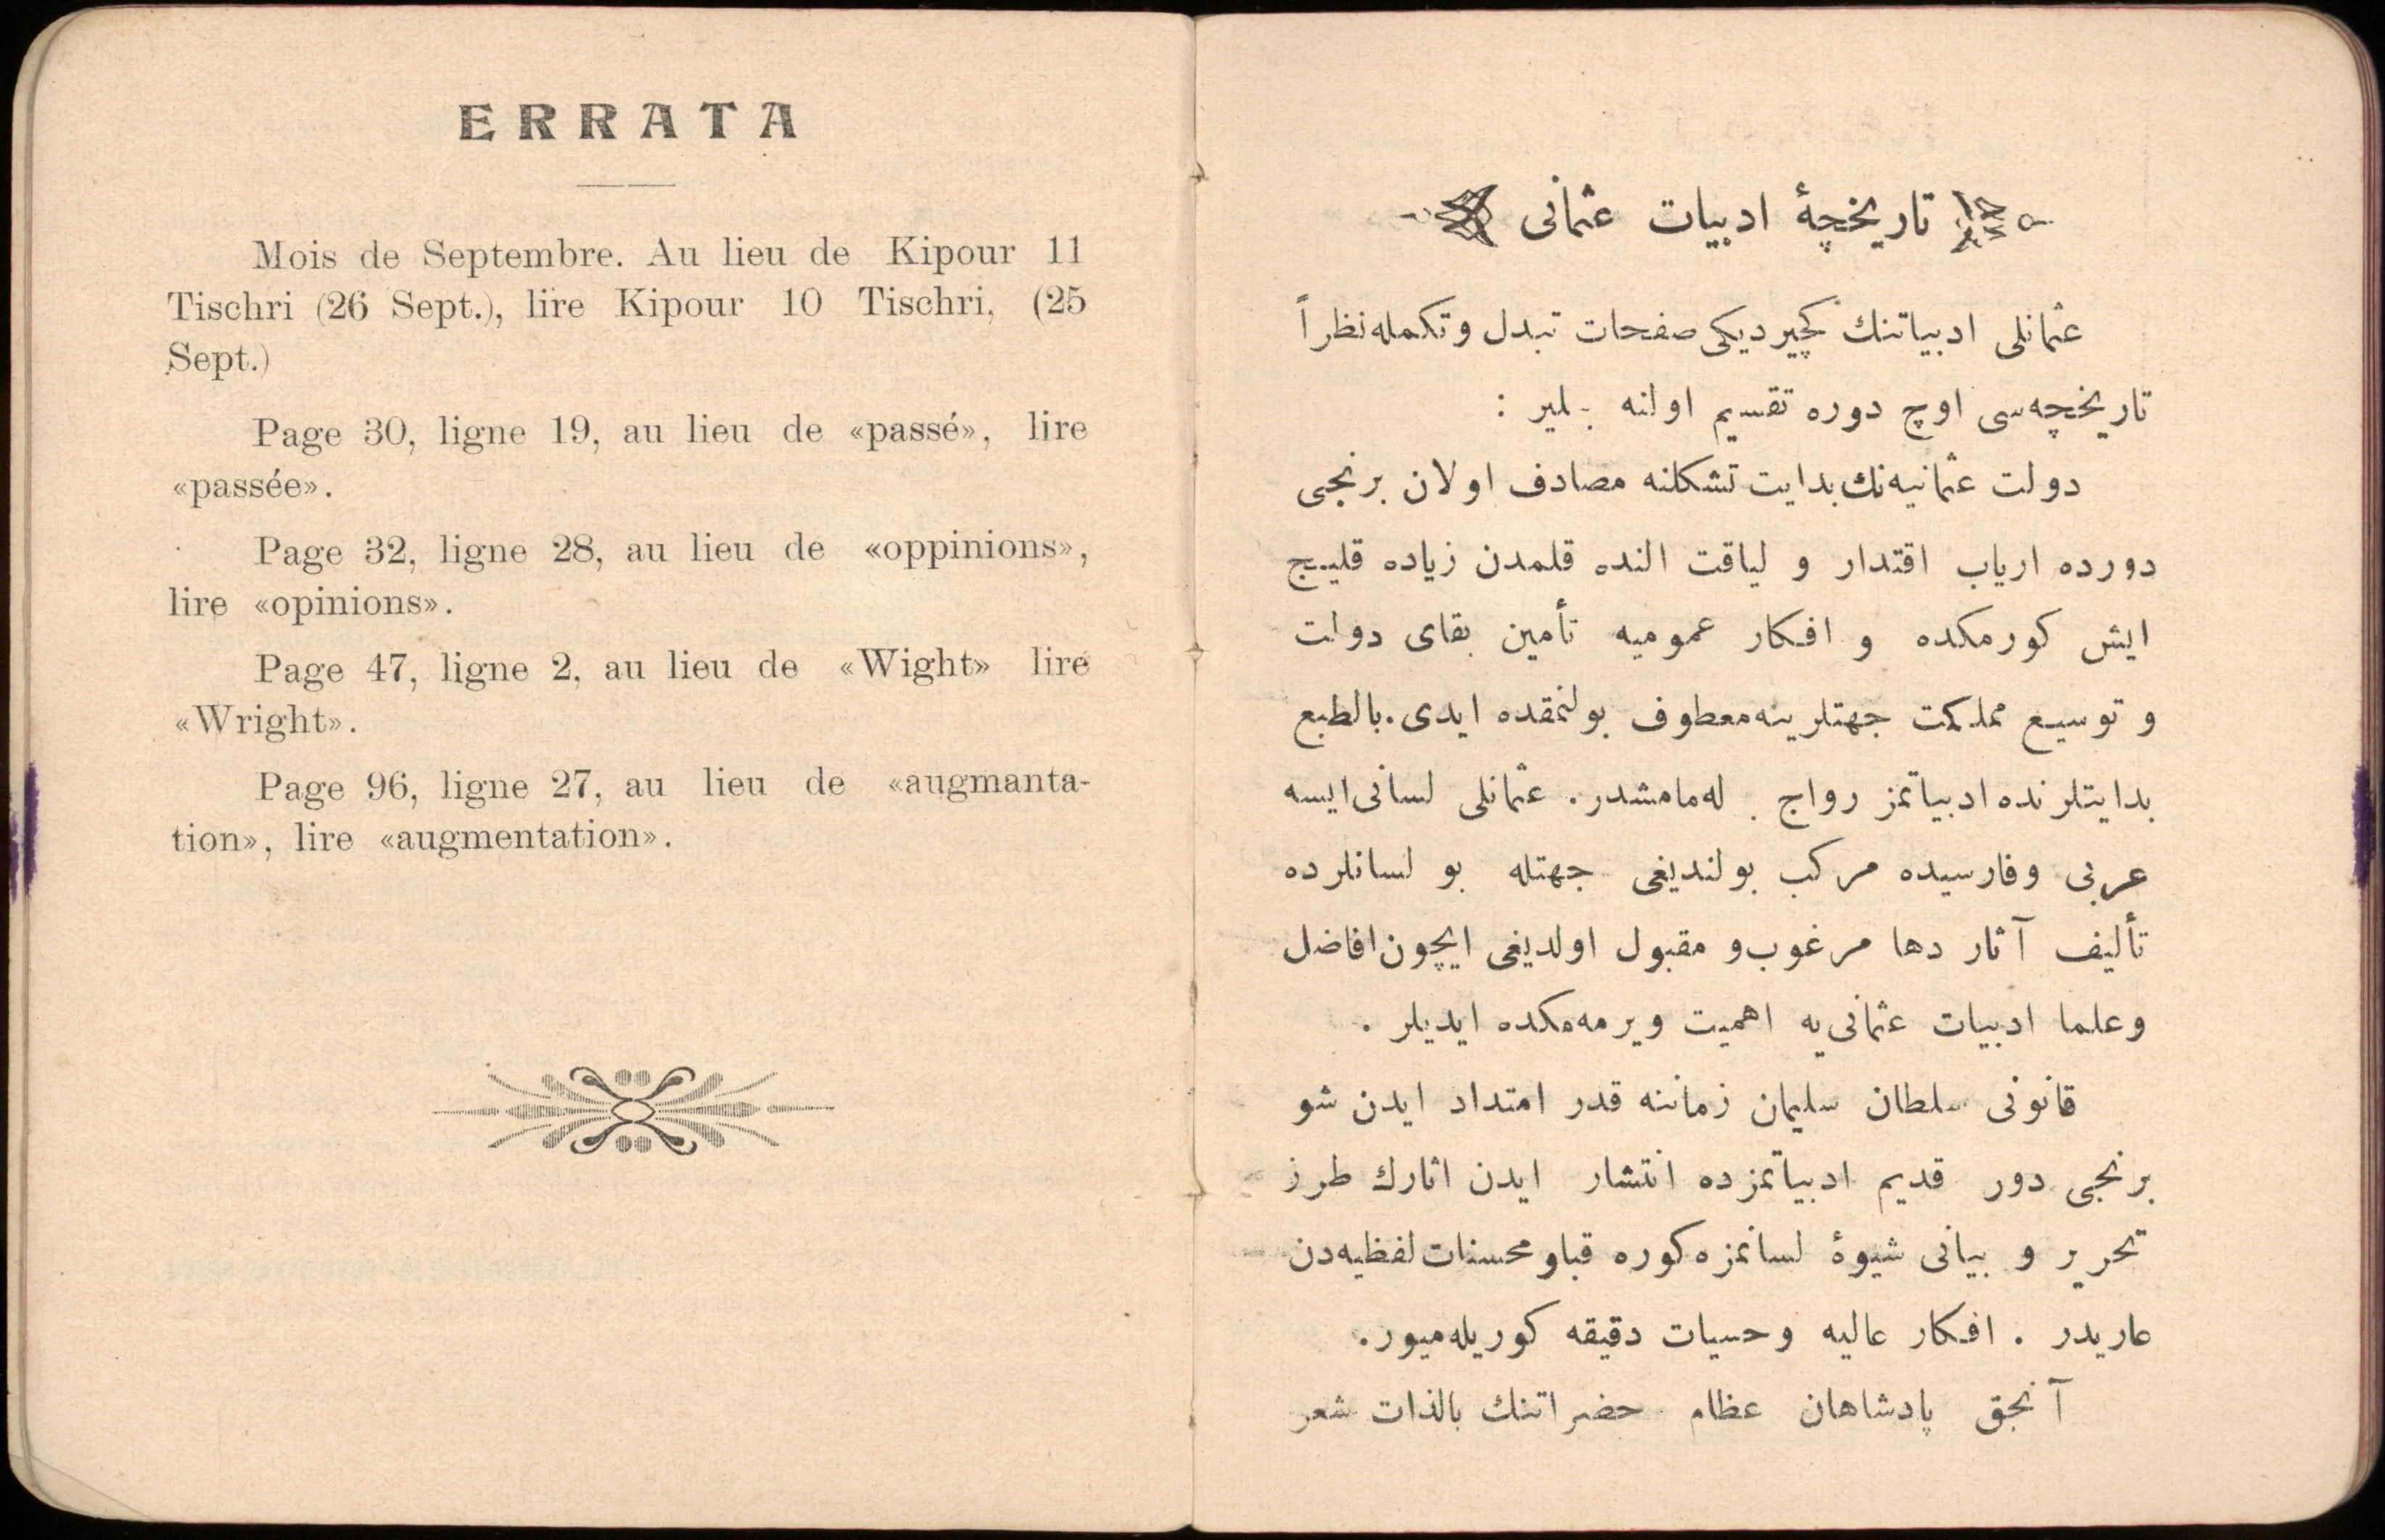 ERRATA
Mois de Septembre. Au lieu de Kipour 11
Tischri (26 Sept.), lire Kipour 10 Tischri, (25
Sept.)
Page 30, ligne 19, au lieu de «passé», lire
«passée».
Page 32, ligne 28, au lieu de «oppinions»,
lire «opinions».
Page 47, ligne 2, au lieu de «Wight» lire
«Wright».
Page 96, ligne 27, au lieu de «augmanta-
tion», lire «augmentation».
تاریخچهٔ ادبیات عثمانی
عثمانلی ادبیاتنك کچیردیکی صفحات تبدل و تکمله نظراً
تاریخچه‌سی اوچ دوره تقسیم اولنه بیلیر :
دولت عثمانیه‌نك بدایت تشکلنه مصادف اولان برنجی
دورده ارباب اقتدار و لیاقت النده قلمدن زیاده قلیج
ایش کورمکده و افکار عمومیه تأمین بقای دولت
و توسیع مملکت جهتلرینه معطوف بولنمقده ایدی. بالطبع
بدایتلرنده ادبیاتمز رواج له‌مامشدر. عثمانلی لسانی ایسه
عربی و فارسیده مرکب بولندیغی جهتله بو لسانلرده
تألیف آثار دها مرغوب و مقبول اولدیغی ایچون افاضل
و علما ادبیات عثمانی‌یه اهمیت ویرمه‌مکده ایدیلر .
قانونی سلطان سلیمان زماننه قدر امتداد ایدن شو
برنجی دور قدیم ادبیاتمزده انتشار ایدن اثارك طرز
تحریر و بیانی شیوهٔ لسانمزه کوره قبا و محسنات لفظیه‌دن
عاریدر . افکار عالیه و حسیات دقیقه کوریله‌میور.
آنجق پادشاهان عظام حضراتنك بالذات شعر